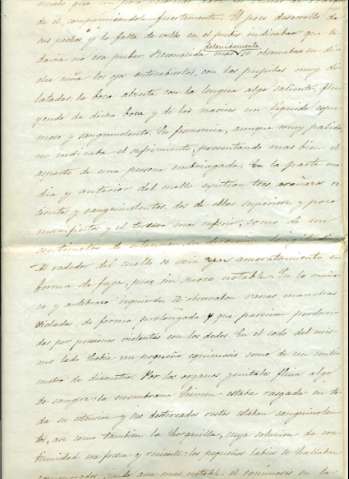 de él, comprimiéndole fuertemente. El poco desarrollo de
sus pechos y la falta de vello en el pubis indicaban que to
davía no era púber. Reconocida
detenidamente
se observaba en di
cha niña los ojos entreabiertos, con las pupilas muy di
latadas, la boca abierta con la lengua algo saliente, flu
yendo de dicha boca y de las narices un líquido espu
moso y sanguinolento. Su fisonomía, aunque muy pálida
no indicaba el sufrimiento, presentando mas bien el
aspecto de una persona embriagada. En la parte me
dia y anterior del cuello existian tres arañazos re
cientes y sanguinolentos, dos de ellos superiores y poco
manifiestos y el tercero mas inferior, como de un
centimetro de
Al rededor del cuello se veia amoratamiento en
forma de faja, pero sin surco notable. En la muñe
ca y antebrazo izquierdo se observaban varias manchas
violadas, de forma prolongada y que parecian produci
das por presiones violentas con los dedos. En el codo del mis
mo lado habia un pequeño equimosis como de un centi
metro de diametro. Por los organos genitales fluia algo
de sangre: la membrana himen estaba rasgada en to
da su estension y sus destrozados restos estaban sanguinolen
tos, asi como tambien la horquilla, cuya solucion de con
tinuidad era fresca y reciente: los pequeños labios se hallaban
mas notable el equimosis en la